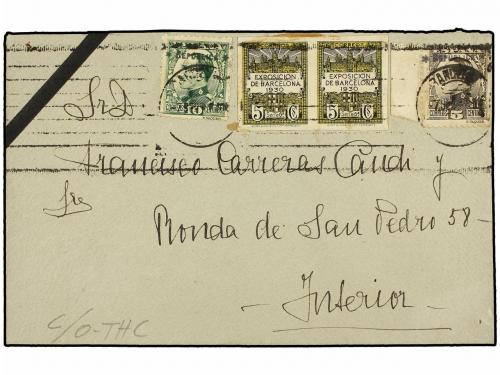 EXPOSICION
DE BARCELONA
1930
5 Cs
EXPOSICION
DE BARCELONA
1930
5 Cs
10
5
Sr D
Francisco Carreras Candi y
Sra
Ronda de San Pedro 58-
- Interior -
C/O-THC